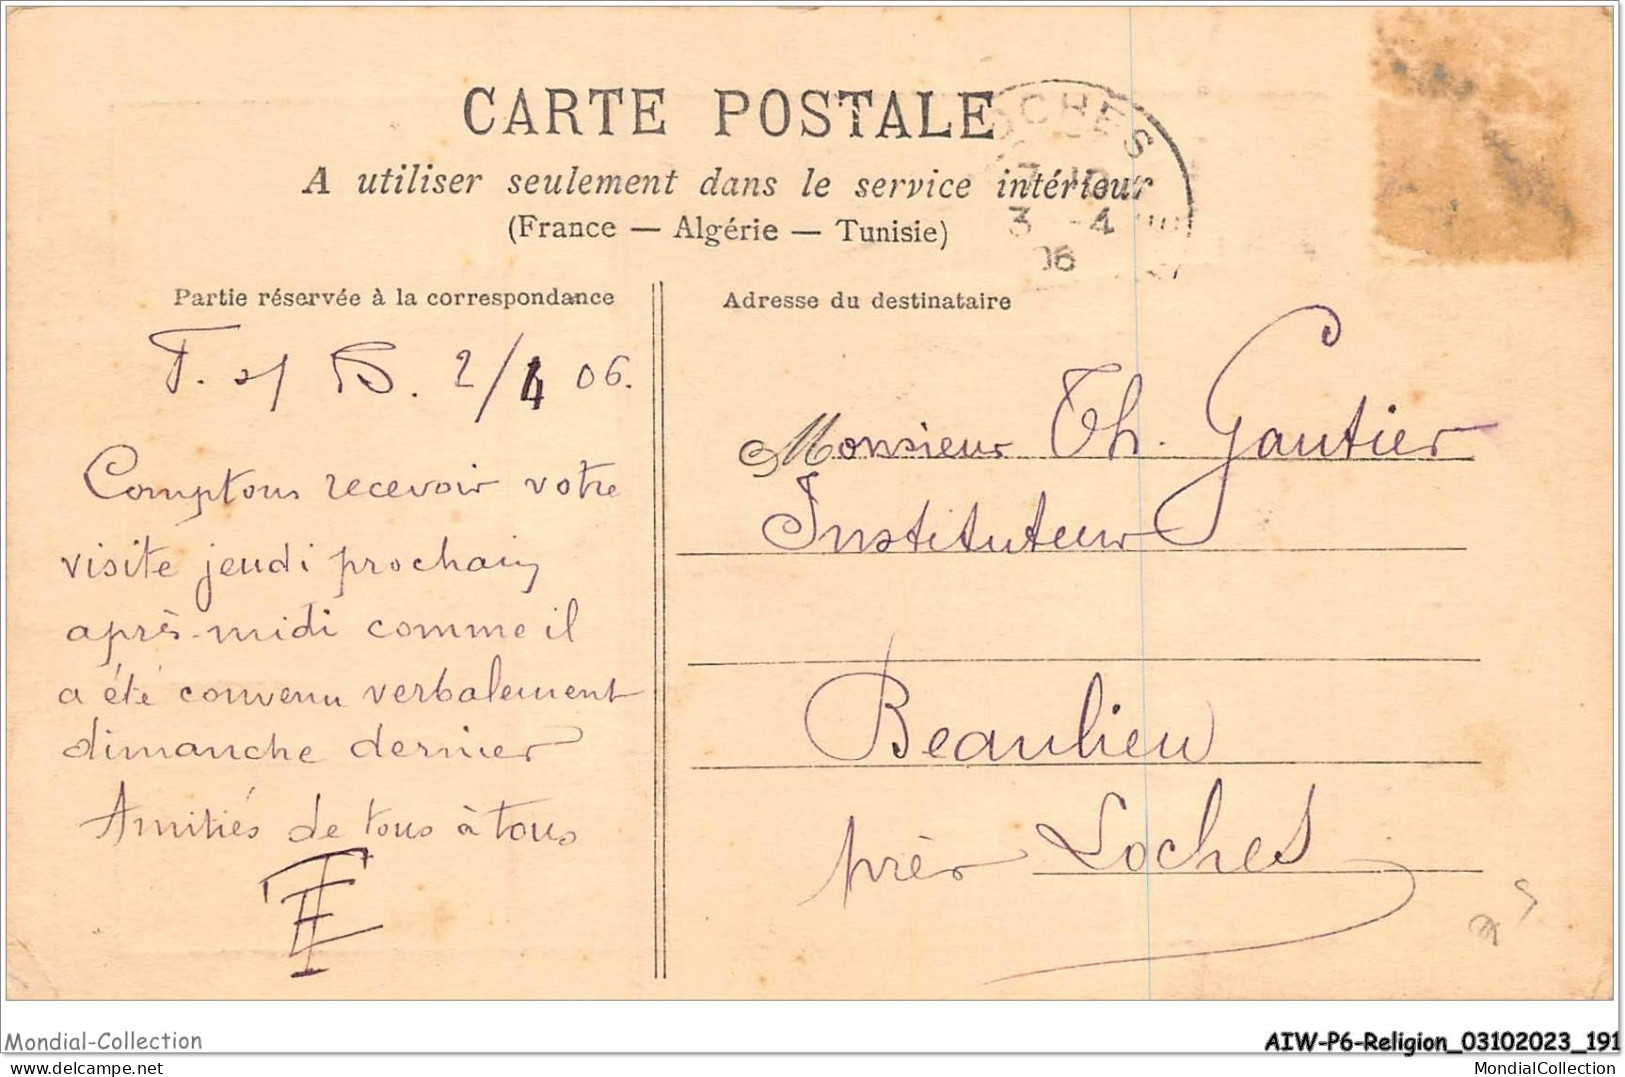 CARTE POSTALE
A utiliser seulement dans le service intérieur
(France — Algérie — Tunisie)
OCHES
3 -4
06
Partie réservée à la correspondance
Adresse du destinataire
2/4 06.
Comptons recevoir votre
visite jeudi prochain
après-midi comme il
a été convenu verbalement
dimanche dernier
Amitiés de tous à tous
Monsieur Th. Gautier
Instituteur
Beaulieu
près Loches
Mondial-Collection
AIW-P6-Religion_03102023_191
MondialCollection